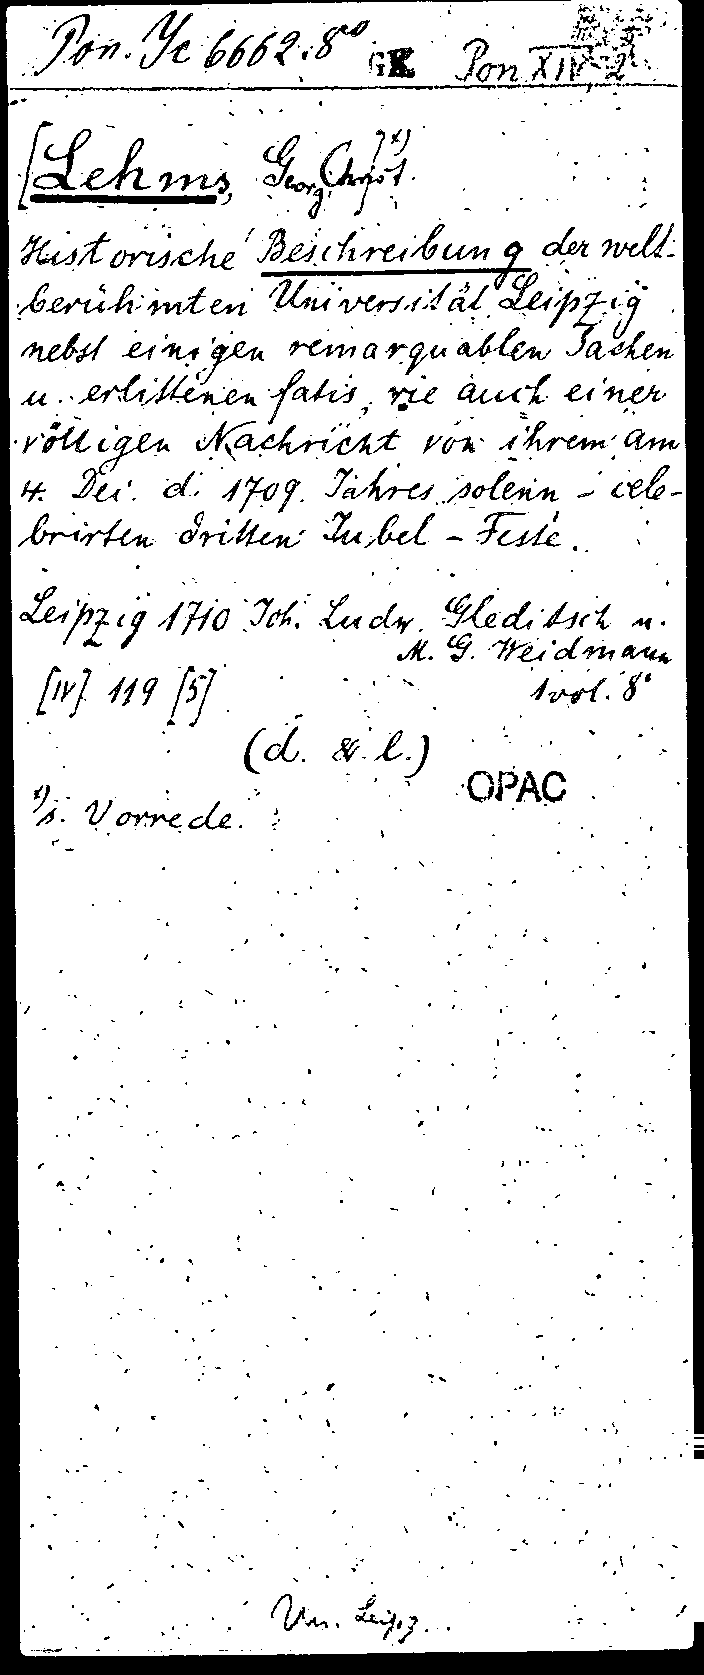 Pon. Yc 6662.8° GK Pon XIV, 2
[Lehms, Georg Christ.] *)
Historische Beschreibung der welt-
berühmten Universität Leipzig
nebst einigen remarquablen Sachen
u. erlittenen fatis, wie auch einer
völligen Nachricht von ihrem am
4. Dei. d. 1709. Jahres solenn - cele-
brirten dritten Jubel - Feste.
Leipzig 1710 Joh. Ludw. Gleditsch u.
M. G. Weidmann
[IV] 119 [5] 1 vol. 8°
(d. & l.)
OPAC
*) s. Vorrede.
Un. Leipz.